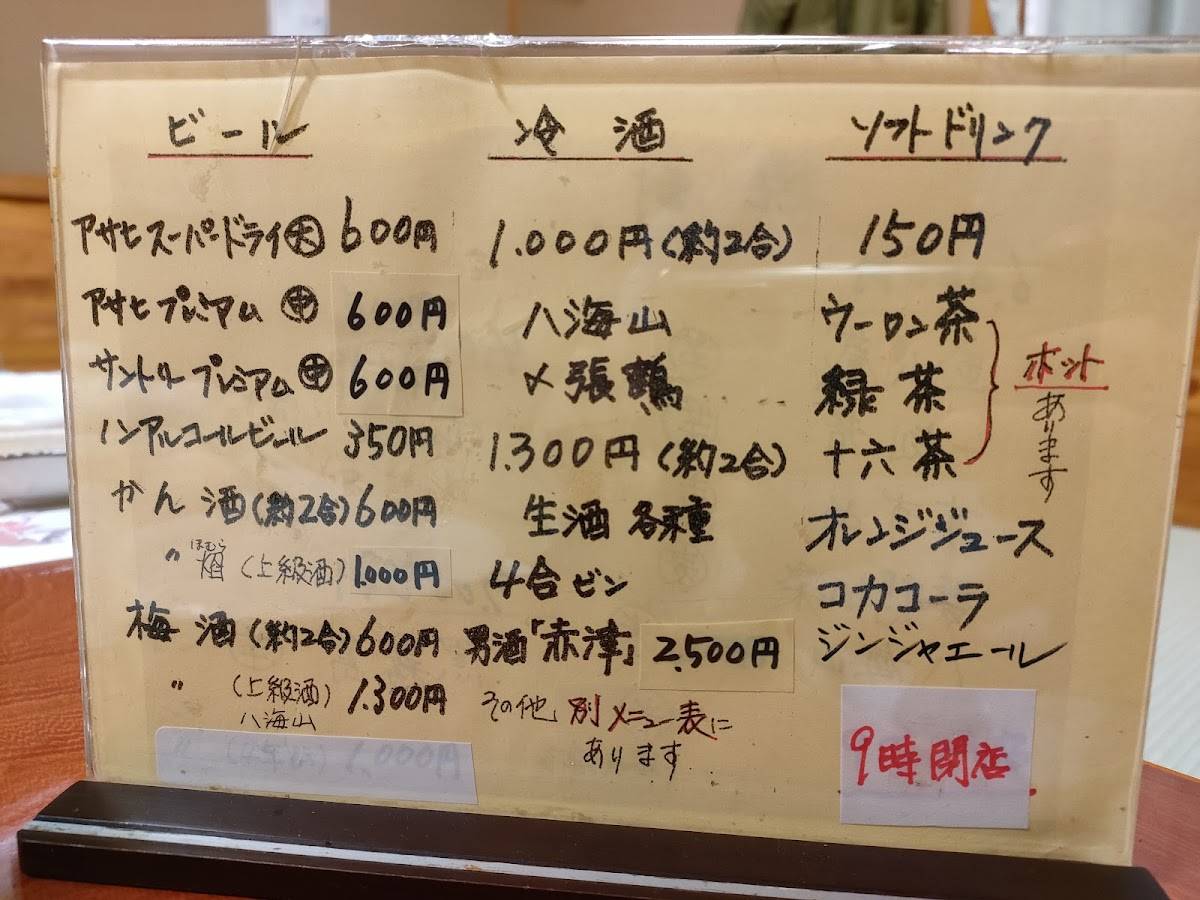 ビール
アサヒスーパードライ大 600円
アサヒプレミアム 中 600円
サントリープレミアム 中 600円
ノンアルコールビール 350円
かん酒(約2合) 600円
ほむら
〃 焔 (上級酒) 1,000円
梅酒(約2合) 600円
〃 (上級酒) 1.300円
八海山
1,000円
冷酒
1.000円(約2合)
八海山
〆張鶴
1.300円(約2合)
生酒 各種
4合ビン
男酒「赤津」 2,500円
その他 別メニュー表に
あります
ソフトドリンク
150円
ウーロン茶
緑茶
十六茶
ホット
あります
オレンジジュース
コカコーラ
ジンジャエール
9時閉店